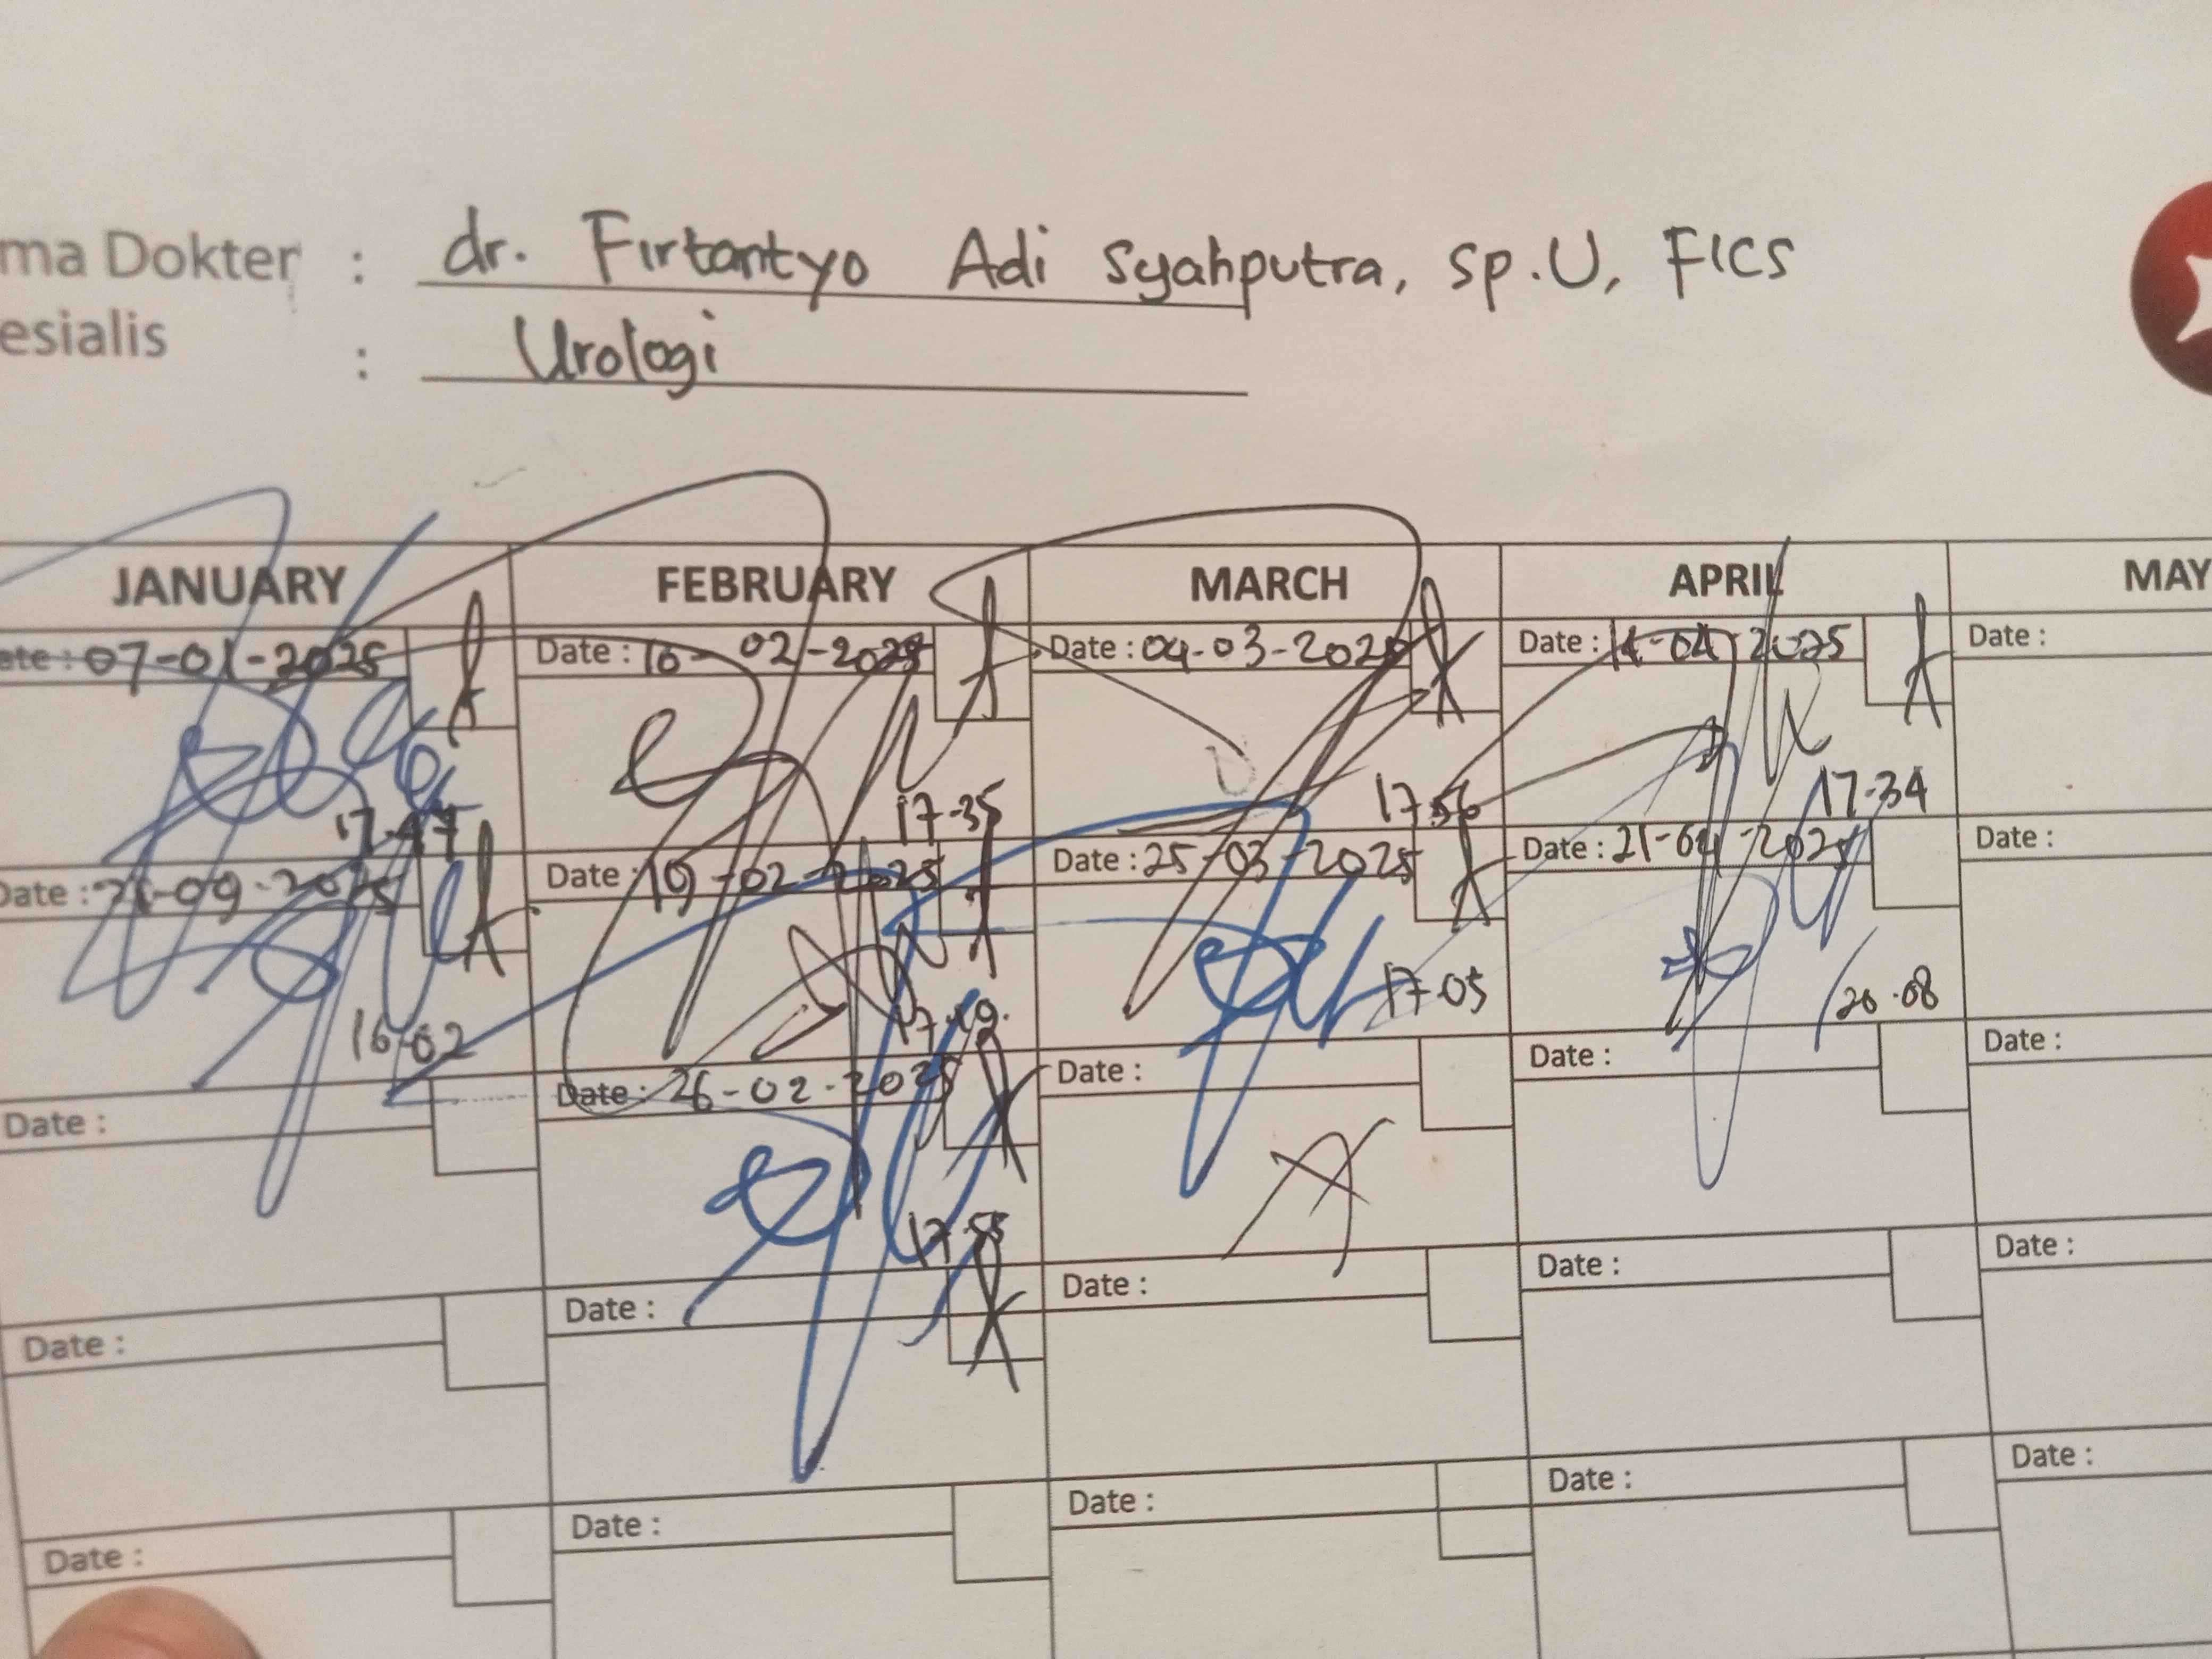 ma Dokter : dr. Firtantyo Adi Syahputra, Sp.U, FICS
esialis : Urologi
JANUARY FEBRUARY MARCH APRIL MAY
ate : 07-01-2025 Date : 10- 02-2025 Date : 04-03-2025 Date : 14-04-2025 Date :
17-47 17-35 17 56 17-34
Date : 21-09-2025 Date : 19-02-2025 Date : 25-03-2025 Date : 21-04-2025 Date :
16-02 17-19 17-05 20-08
Date : Date : 26-02-2025 Date : Date : Date :
17-55
Date : Date : Date : Date : Date :
Date : Date : Date : Date : Date :